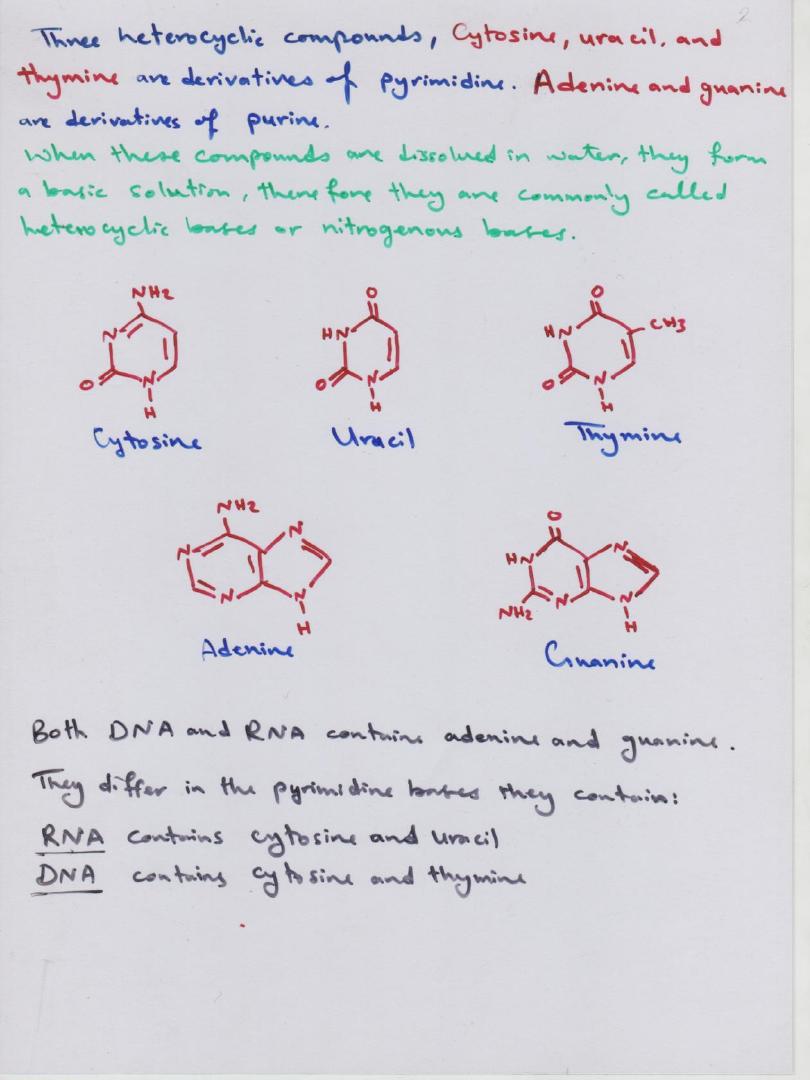 2
Three heterocyclic compounds, Cytosine, uracil, and
thymine are derivatives of pyrimidine. Adenine and guanine
are derivatives of purine.
When these compounds are dissolved in water, they form
a basic solution, therefore they are commonly called
heterocyclic bases or nitrogenous bases.
NH2 O O
N HN HN CH3
O N O N O N
H H H
Cytosine Uracil Thymine
NH2 O
N N HN N
N N NH2 N N
H H
Adenine Guanine
Both DNA and RNA contains adenine and guanine.
They differ in the pyrimidine bases they contain:
RNA contains cytosine and uracil
DNA contains cytosine and thymine